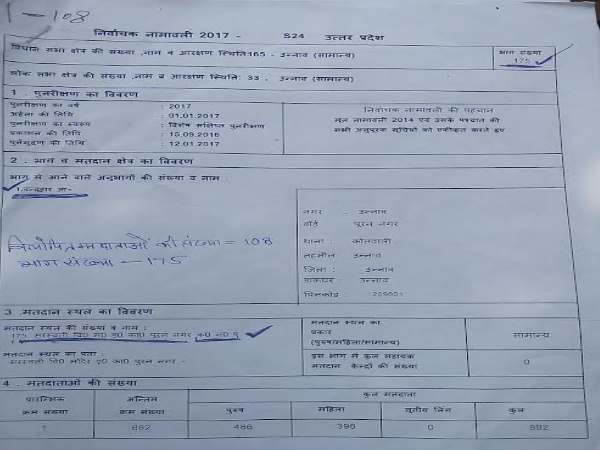 1-108
निर्वाचक नामावली 2017 - S24 उत्तर प्रदेश
विधान सभा क्षेत्र की संख्या ,नाम व आरक्षण स्थिति:165 - उन्नाव (सामान्य)
भाग संख्या
175
लोक सभा क्षेत्र की संख्या ,नाम व आरक्षण स्थिति: 33 , उन्नाव (सामान्य)
1 . पुनरीक्षण का विवरण
पुनरीक्षण का वर्ष : 2017
अर्हता की तिथि : 01.01.2017
पुनरीक्षण का स्वरूप : विशेष संक्षिप्त पुनरीक्षण
प्रकाशन की तिथि : 15.09.2016
पुनर्मुद्रण की तिथि : 12.01.2017
निर्वाचक नामावली की पहचान
मूल नामावली 2014 एवं उसके पश्चात की
सभी अनुपूरक सूचियों को एकीकृत करते हुए
2 . भाग व मतदान क्षेत्र का विवरण
भाग में आने वाले अनुभागों की संख्या व नाम :
विलोपित मतदाताओं की संख्या = 108
भाग संख्या - 175
नगर - उन्नाव
वार्ड पूरन नगर
थाना : कोतवाली
तहसील : उन्नाव
जिला : उन्नाव
डाकघर : उन्नाव
पिनकोड
3 .मतदान स्थल का विवरण
मतदान स्थल की संख्या व नाम :
175 सरस्वती वि0 मं0 इ0 का0 पूरन नगर क0 नं0
मतदान स्थल का पता :
सरस्वती वि0 मंदिर इ0 का0 पूरन नगर -
मतदान स्थल का
प्रकार
(पुरुष/महिला/सामान्य)
सामान्य
इस भाग में कुल सहायक
मतदान केन्द्रों की संख्या
0
4 . मतदाताओं की संख्या
प्रारम्भिक क्रम संख्या
अन्तिम क्रम संख्या
कुल मतदाता
पुरुष महिला तृतीय लिंग कुल
1 882 486 396 0 882